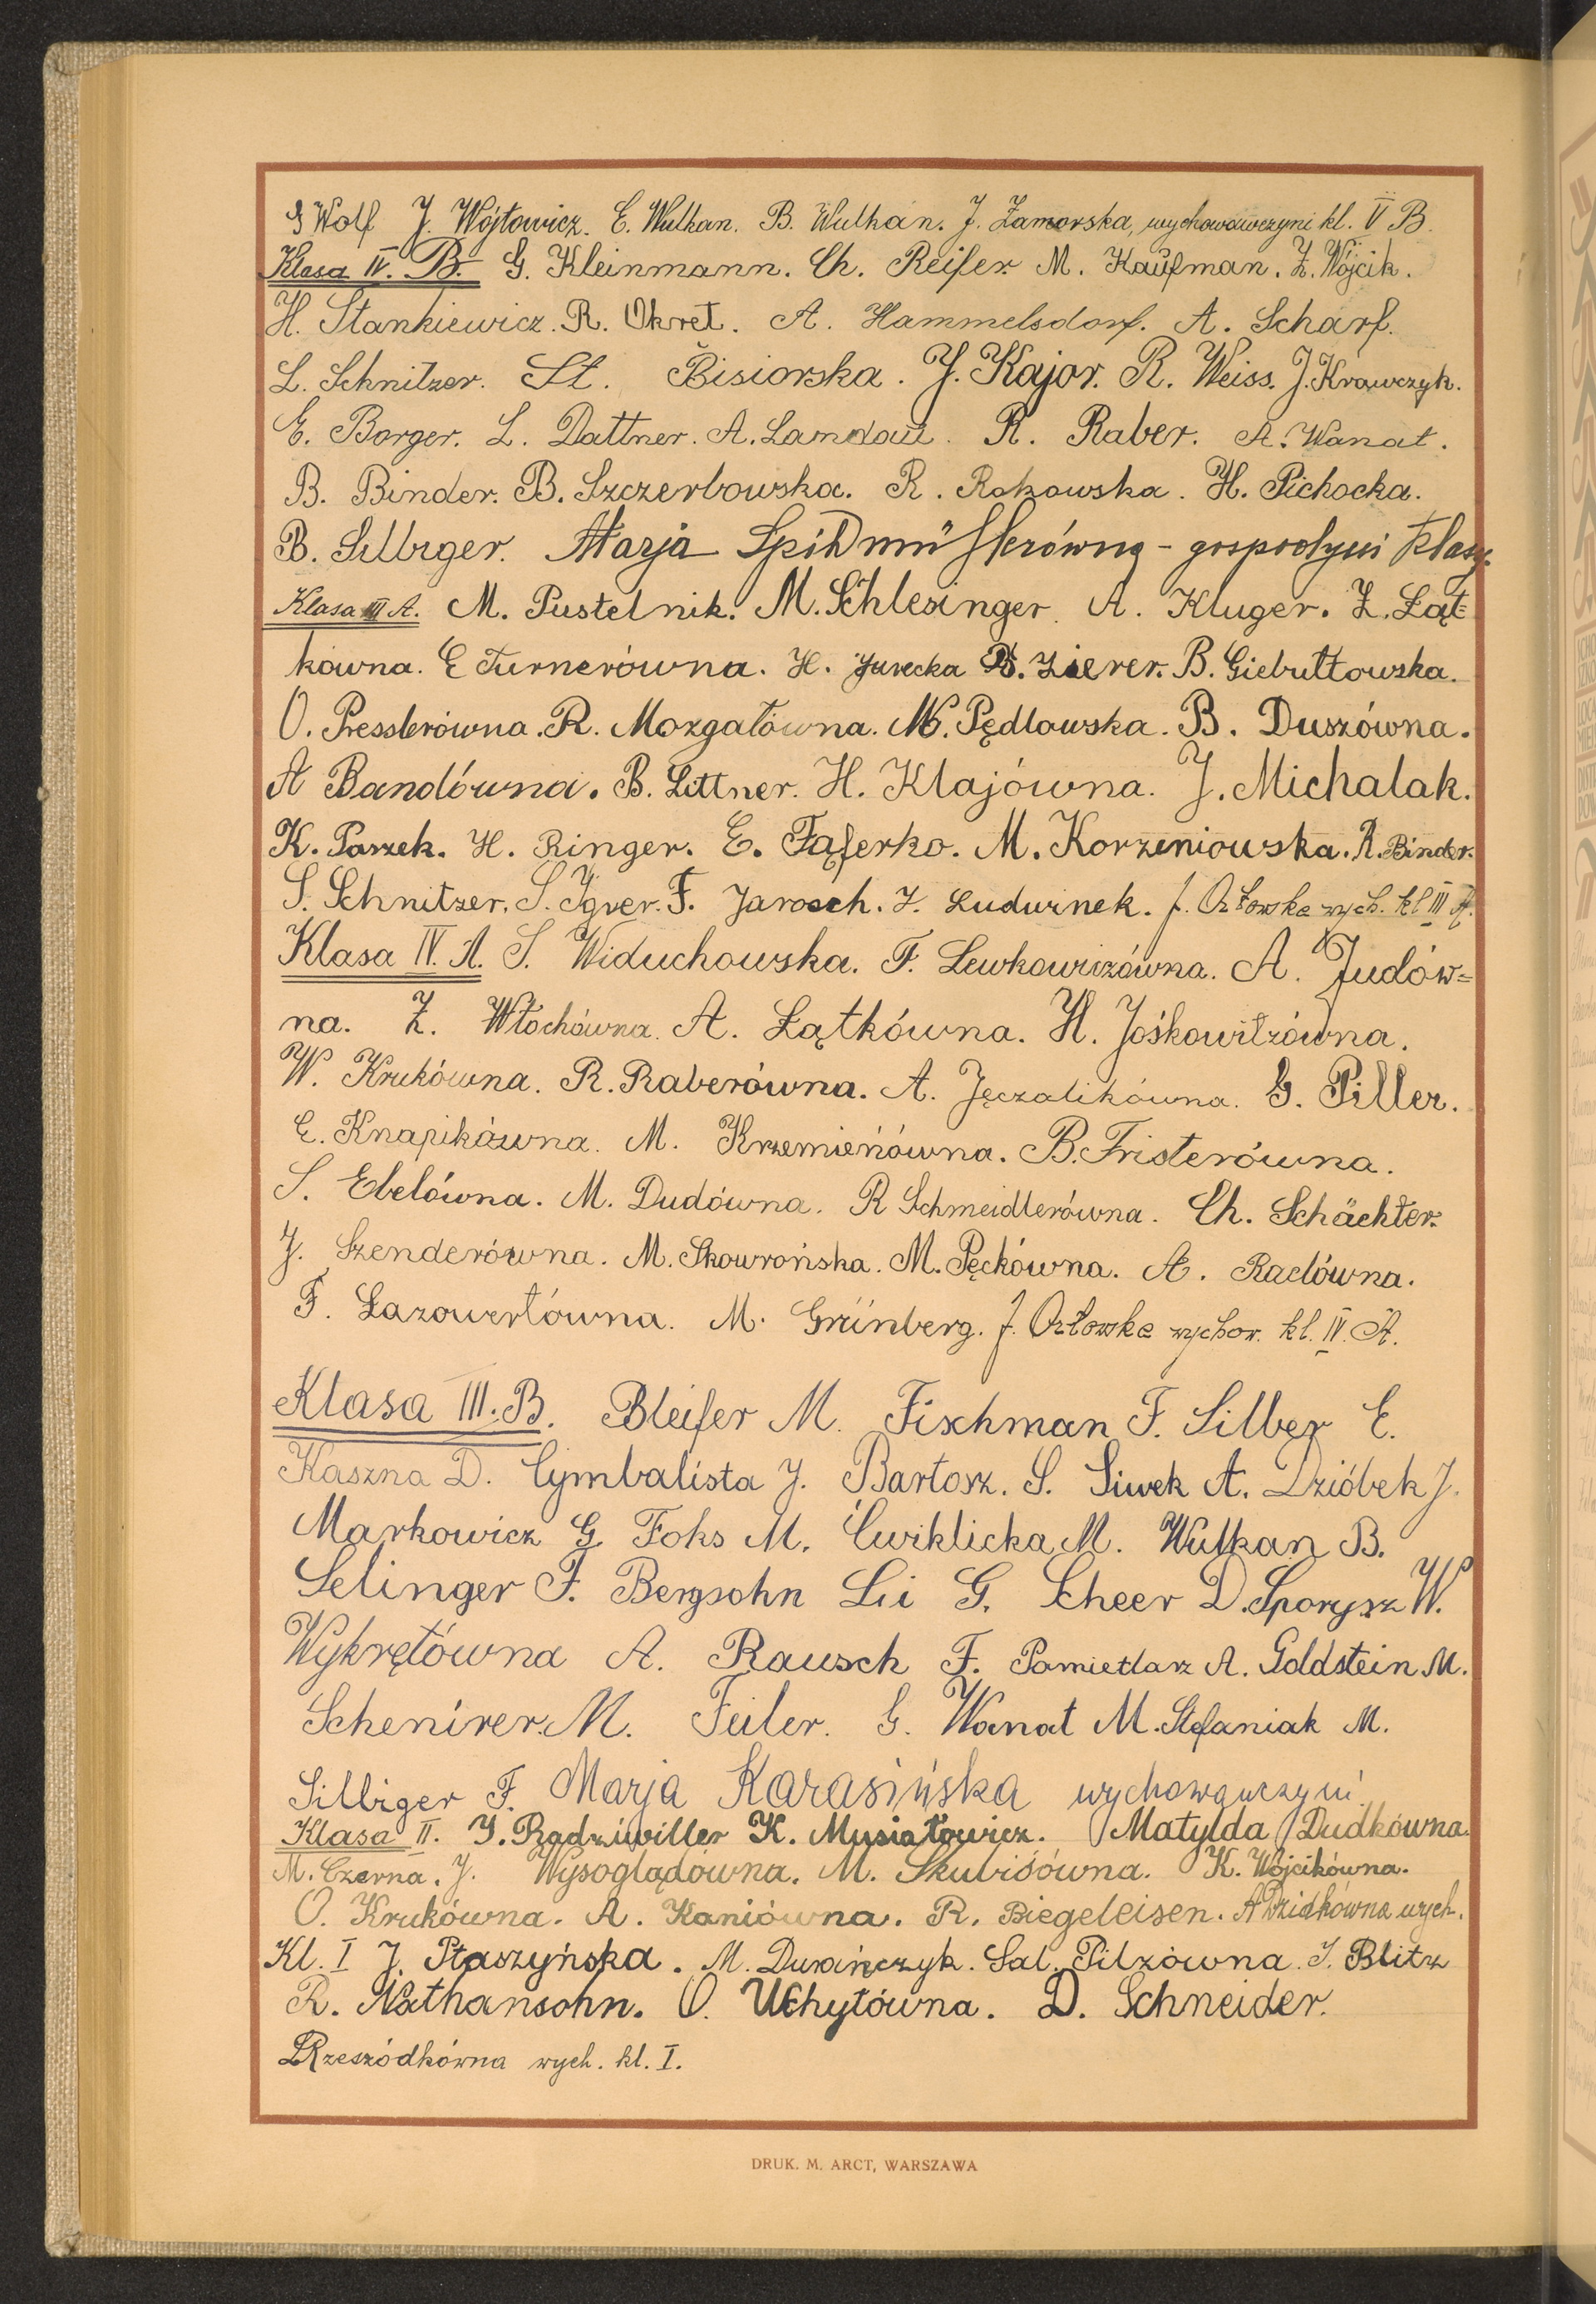 S Wolf J. Wójtowicz. E. Wulkan. B. Wulkan. J. Zamorska, wychowawczyni kl. V B.
Klasa IV. B. G. Kleinmann. Ch. Reifer. M. Kaufman. Z. Wójcik.
H. Stankiewicz. R. Okręt. A. Hammelsdorf. A. Scharf.
L. Schnitzer. St. Bisiorska. J. Kajor. R. Weiss. J. Krawczyk.
E. Borger. L. Dattner. A. Landau. R. Raber. A. Wanat.
B. Binder. B. Szczerbowska. R. Rokowska. H. Pichocka.
B. Silbiger. Marja Spithmüllerówna - gospodyni klasy.
Klasa III A. M. Pustelnik. M. Schlesinger. A. Kluger. Z. Łąt=
kówna. E Turnerówna. H. Jurecka B. Zierer. B. Giebułtowska.
O. Presslerówna. R. Mozgałówna. M. Pędlowska. B. Duszówna.
A Bandówna. B. Littner. H. Klajówna. J. Michalak.
K. Paszek. H. Ringer. E. Fąferko. M. Korzeniowska. R. Binder.
S. Schnitzer. S. Igver. F. Jarosch. Z. Ludwinek. J. Orłowska wych. kl III A.
Klasa IV. A. S. Widuchowska. F. Lewkowiczówna. A. Judów=
na. Z. Włochówna. A. Łątkówna. H. Jośkowitzówna.
W. Krukówna. R. Raberówna. A. Jęczalikówna. G. Piller.
E. Knapikówna. M. Krzemieńówna. B. Fristerówna.
S. Ebelówna. M. Dudówna. R Schmeidlerówna. Ch. Schächter.
J. Szenderówna. M. Skowrońska. M. Pęckówna. A. Raclówna.
F. Lazowertówna. M. Grünberg. J. Orłowska wychow. kl. IV. A.
Klasa III. B. Bleifer M. Fischman F. Silber E.
Kaszna D. Cymbalista J. Bartosz. S. Siwek A. Dzióbek J.
Markowicz G. Foks M. Ćwiklicka M. Wulkan B.
Selinger F. Bergsohn Li G. Scheer D. Sporysz W.
Wykrętówna A. Rausch F. Pamietlarz A. Goldstein M.
Schenirer M. Feiler. G. Wanat M. Stefaniak M.
Silbiger F. Marja Karasińska wychowawczyni
Klasa II. J. Radziwiller K. Musiałowicz. Matylda Dudkówna.
M. Czerna. J. Wysoglądówna. M. Skubisówna. K. Wójcikówna.
O. Krukówna. A. Kaniówna. R. Biegeleisen. A Dzidkówna wych.
Kl. I J. Ptaszyńska. M. Durańczyk. Sal. Pilzówna. J. Blitz
R. Nathansohn. O. Uchytówna. D. Schneider.
Rzeszódkówna wych. kl. I.
DRUK. M. ARCT, WARSZAWA